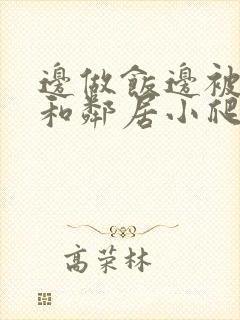 邊做飯邊被
和鄰居小爬
高荣林